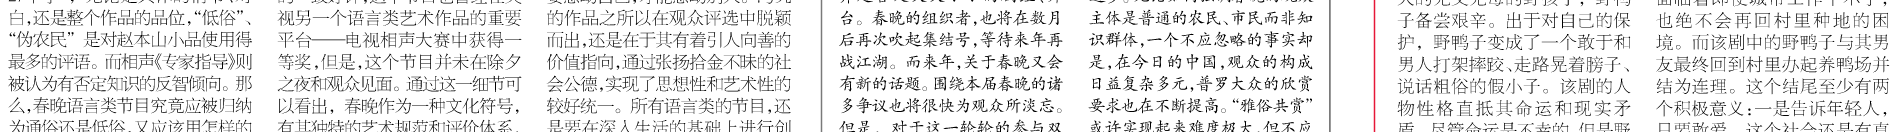 白,还是整个作品的品位,“低俗”、
“伪农民”是对赵本山小品使用得
最多的评语。而相声《专家指导》则
被认为有否定知识的反智倾向。那
么,春晚语言类节目究竟应被归纳
为通俗还是低俗,又应该用怎样的
视另一个语言类艺术作品的重要
平台——电视相声大赛中获得一
等奖,但是,这个节目并未在除夕
之夜和观众见面。通过这一细节可
以看出，春晚作为一种文化符号,
有其独特的艺术规范和评价体系。
的作品之所以在观众评选中脱颖
而出,还是在于其有着引人向善的
价值指向,通过张扬拾金不昧的社
会公德,实现了思想性和艺术性的
较好统一。所有语言类的节目,还
是要在深入生活的基础上进行创
台。春晚的组织者,也将在数月
后再次吹起集结号,等待来年再
战江湖。而来年,关于春晚又会
有新的话题。围绕本届春晚的诸
多争议也将很快为观众所淡忘。
但是，对于这一轮轮的参与双
主体是普通的农民、市民而非知
识群体,一个不应忽略的事实却
是,在今日的中国,观众的构成
日益复杂多元,普罗大众的欣赏
要求也在不断提高。“雅俗共赏”
或许实现起来难度极大,但不应
子备尝艰辛。出于对自己的保
护，野鸭子变成了一个敢于和
男人打架摔跤、走路晃着膀子、
说话粗俗的假小子。该剧的人
物性格直抵其命运和现实矛
盾。尽管命运是不幸的,但是野
也绝不会再回村里种地的困
境。而该剧中的野鸭子与其男
友最终回到村里办起养鸭场并
结为连理。这个结尾至少有两
个积极意义:一是告诉年轻人,
只要敢爱，这个社会还是有真